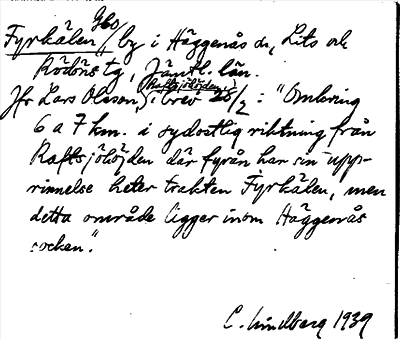 Gbo
Fyrkälen, by i Häggenås sn, Lits och
Rödöns tg, Jämtl. län.
(Raftsjöhöjden)
Jfr Lars Olsson, i brev 28/2: "Omkring
6 a 7 km. i sydostlig riktning från
Raftsjöhöjden där fyrån har sin upp-
rinnelse heter trakten Fyrkälen, men
detta område ligger inom Häggenås
socken."
C. Lindberg 1939